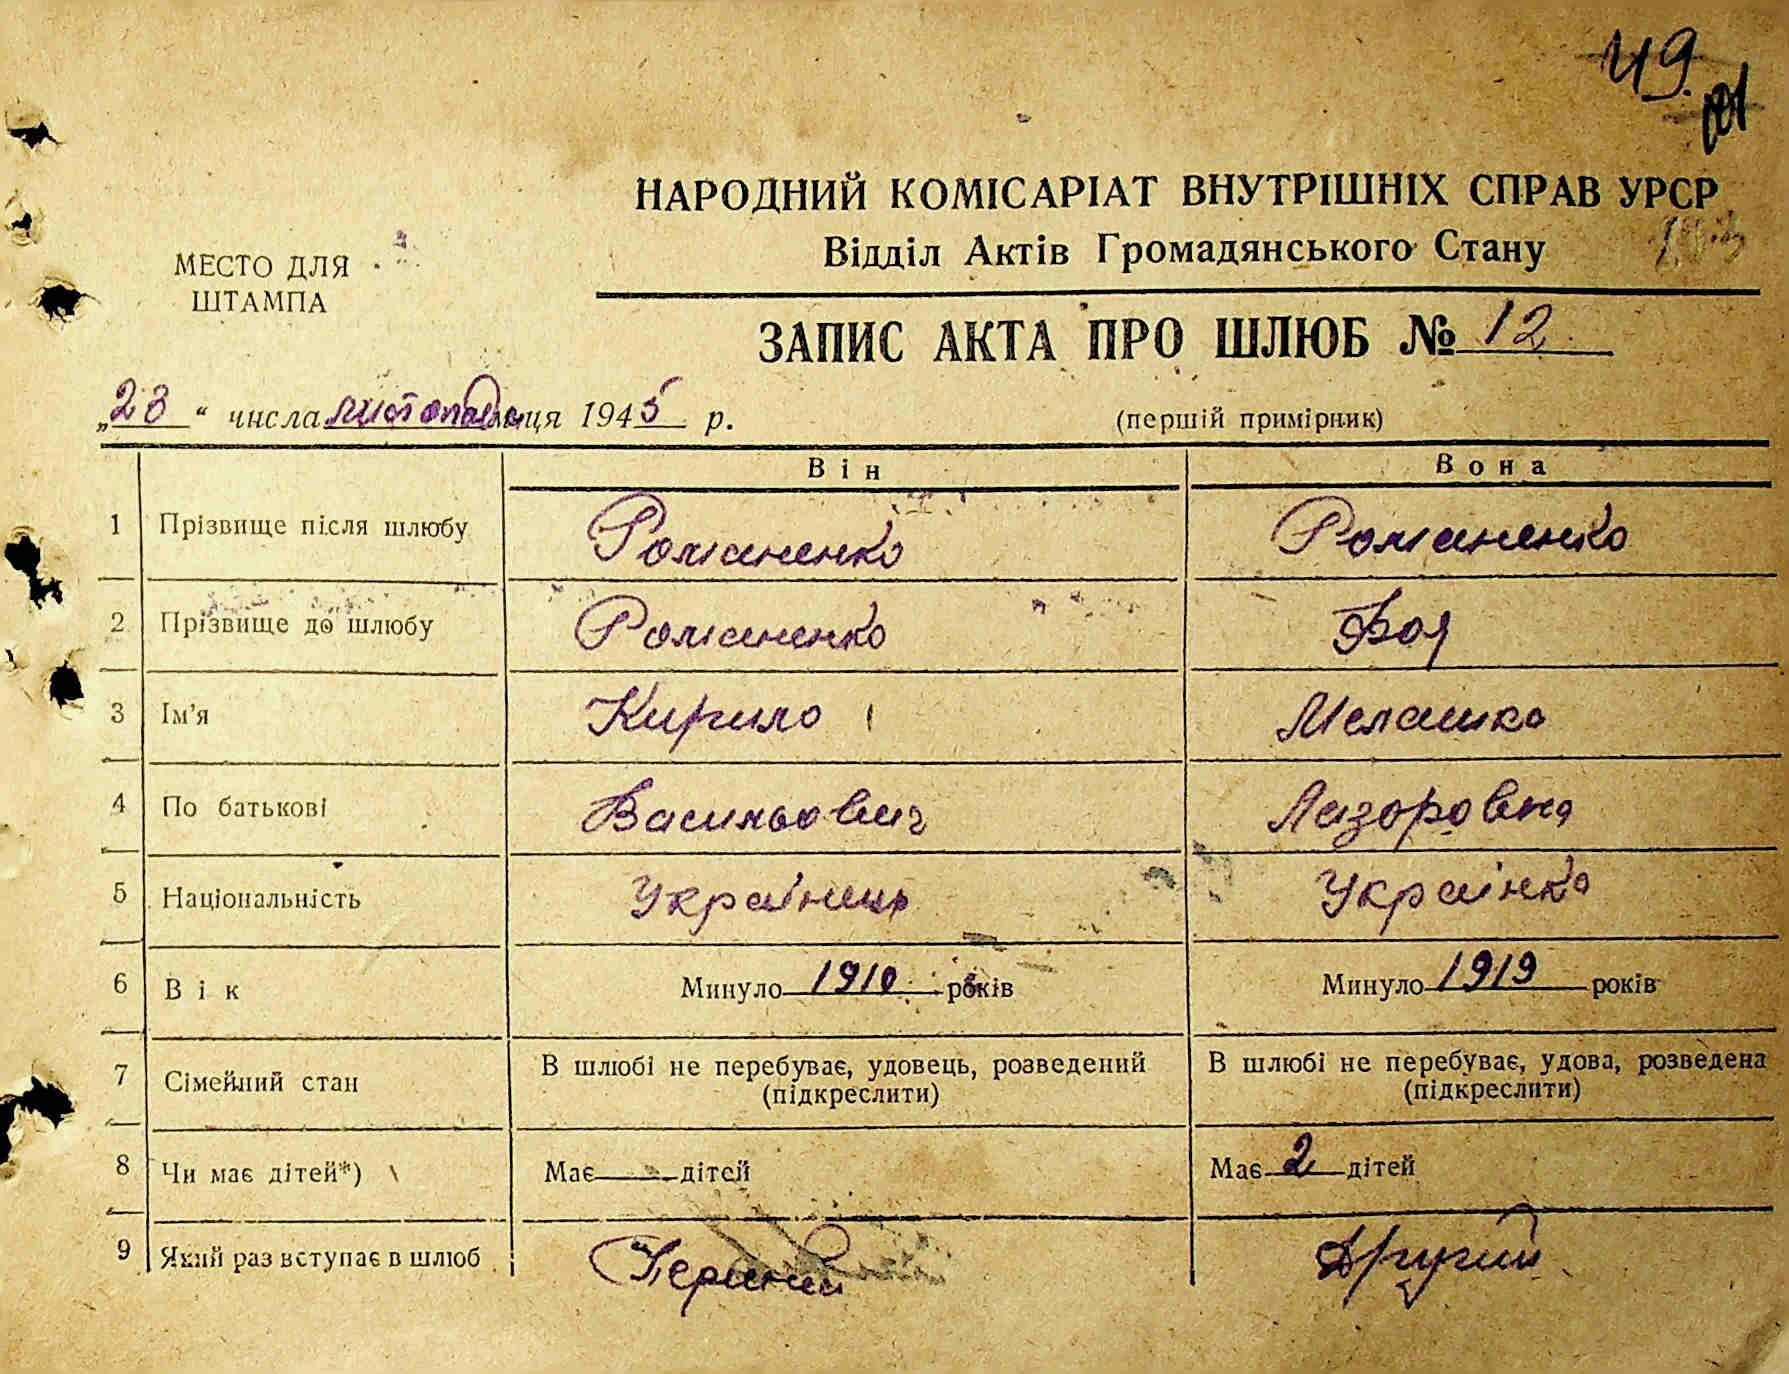 49.
101
НАРОДНИЙ КОМІСАРІАТ ВНУТРІШНІХ СПРАВ УРСР
Відділ Актів Громадянського Стану
МЕСТО ДЛЯ
ШТАМПА
ЗАПИС АКТА ПРО ШЛЮБ № 12
„28“ числа листопада м-ця 1945 р.
(першій примірник)
Він Вона
1 Прізвище після шлюбу Романенко Романенко
2 Прізвище до шлюбу Романенко Боя
3 Ім'я Кирило Мелашка
4 По батькові Васильович Лазоровна
5 Національність Українець Українка
6 Вік Минуло 1910 років Минуло 1919 років
7 Сімейний стан В шлюбі не перебуває, удовець, розведений (підкреслити) В шлюбі не перебуває, удова, розведена (підкреслити)
8 Чи має дітей*) Має - дітей Має 2 дітей
9 Який раз вступає в шлюб Первий Другий